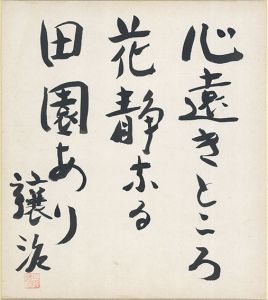 心遠きところ
花静なる
田園あり
譲治